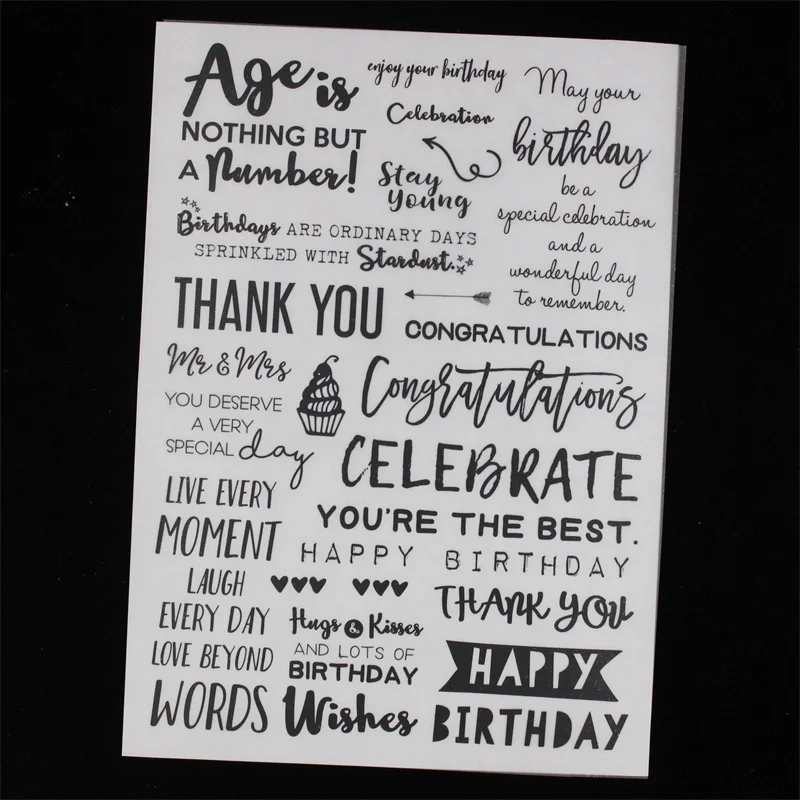 Age is
NOTHING BUT
A Number!
enjoy your birthday
Celebration
Stay
Young
May your
birthday
be a
special celebration
and a
wonderful day
to remember.
Birthdays ARE ORDINARY DAYS
SPRINKLED WITH Stardust.
THANK YOU
CONGRATULATIONS
Mr & Mrs
YOU DESERVE
A VERY
SPECIAL day
Congratulations
CELEBRATE
YOU'RE THE BEST.
HAPPY BIRTHDAY
LIVE EVERY
MOMENT
LAUGH
EVERY DAY
LOVE BEYOND
WORDS
Hugs & Kisses
AND LOTS OF
BIRTHDAY
Wishes
THANK YOU
HAPPY
BIRTHDAY